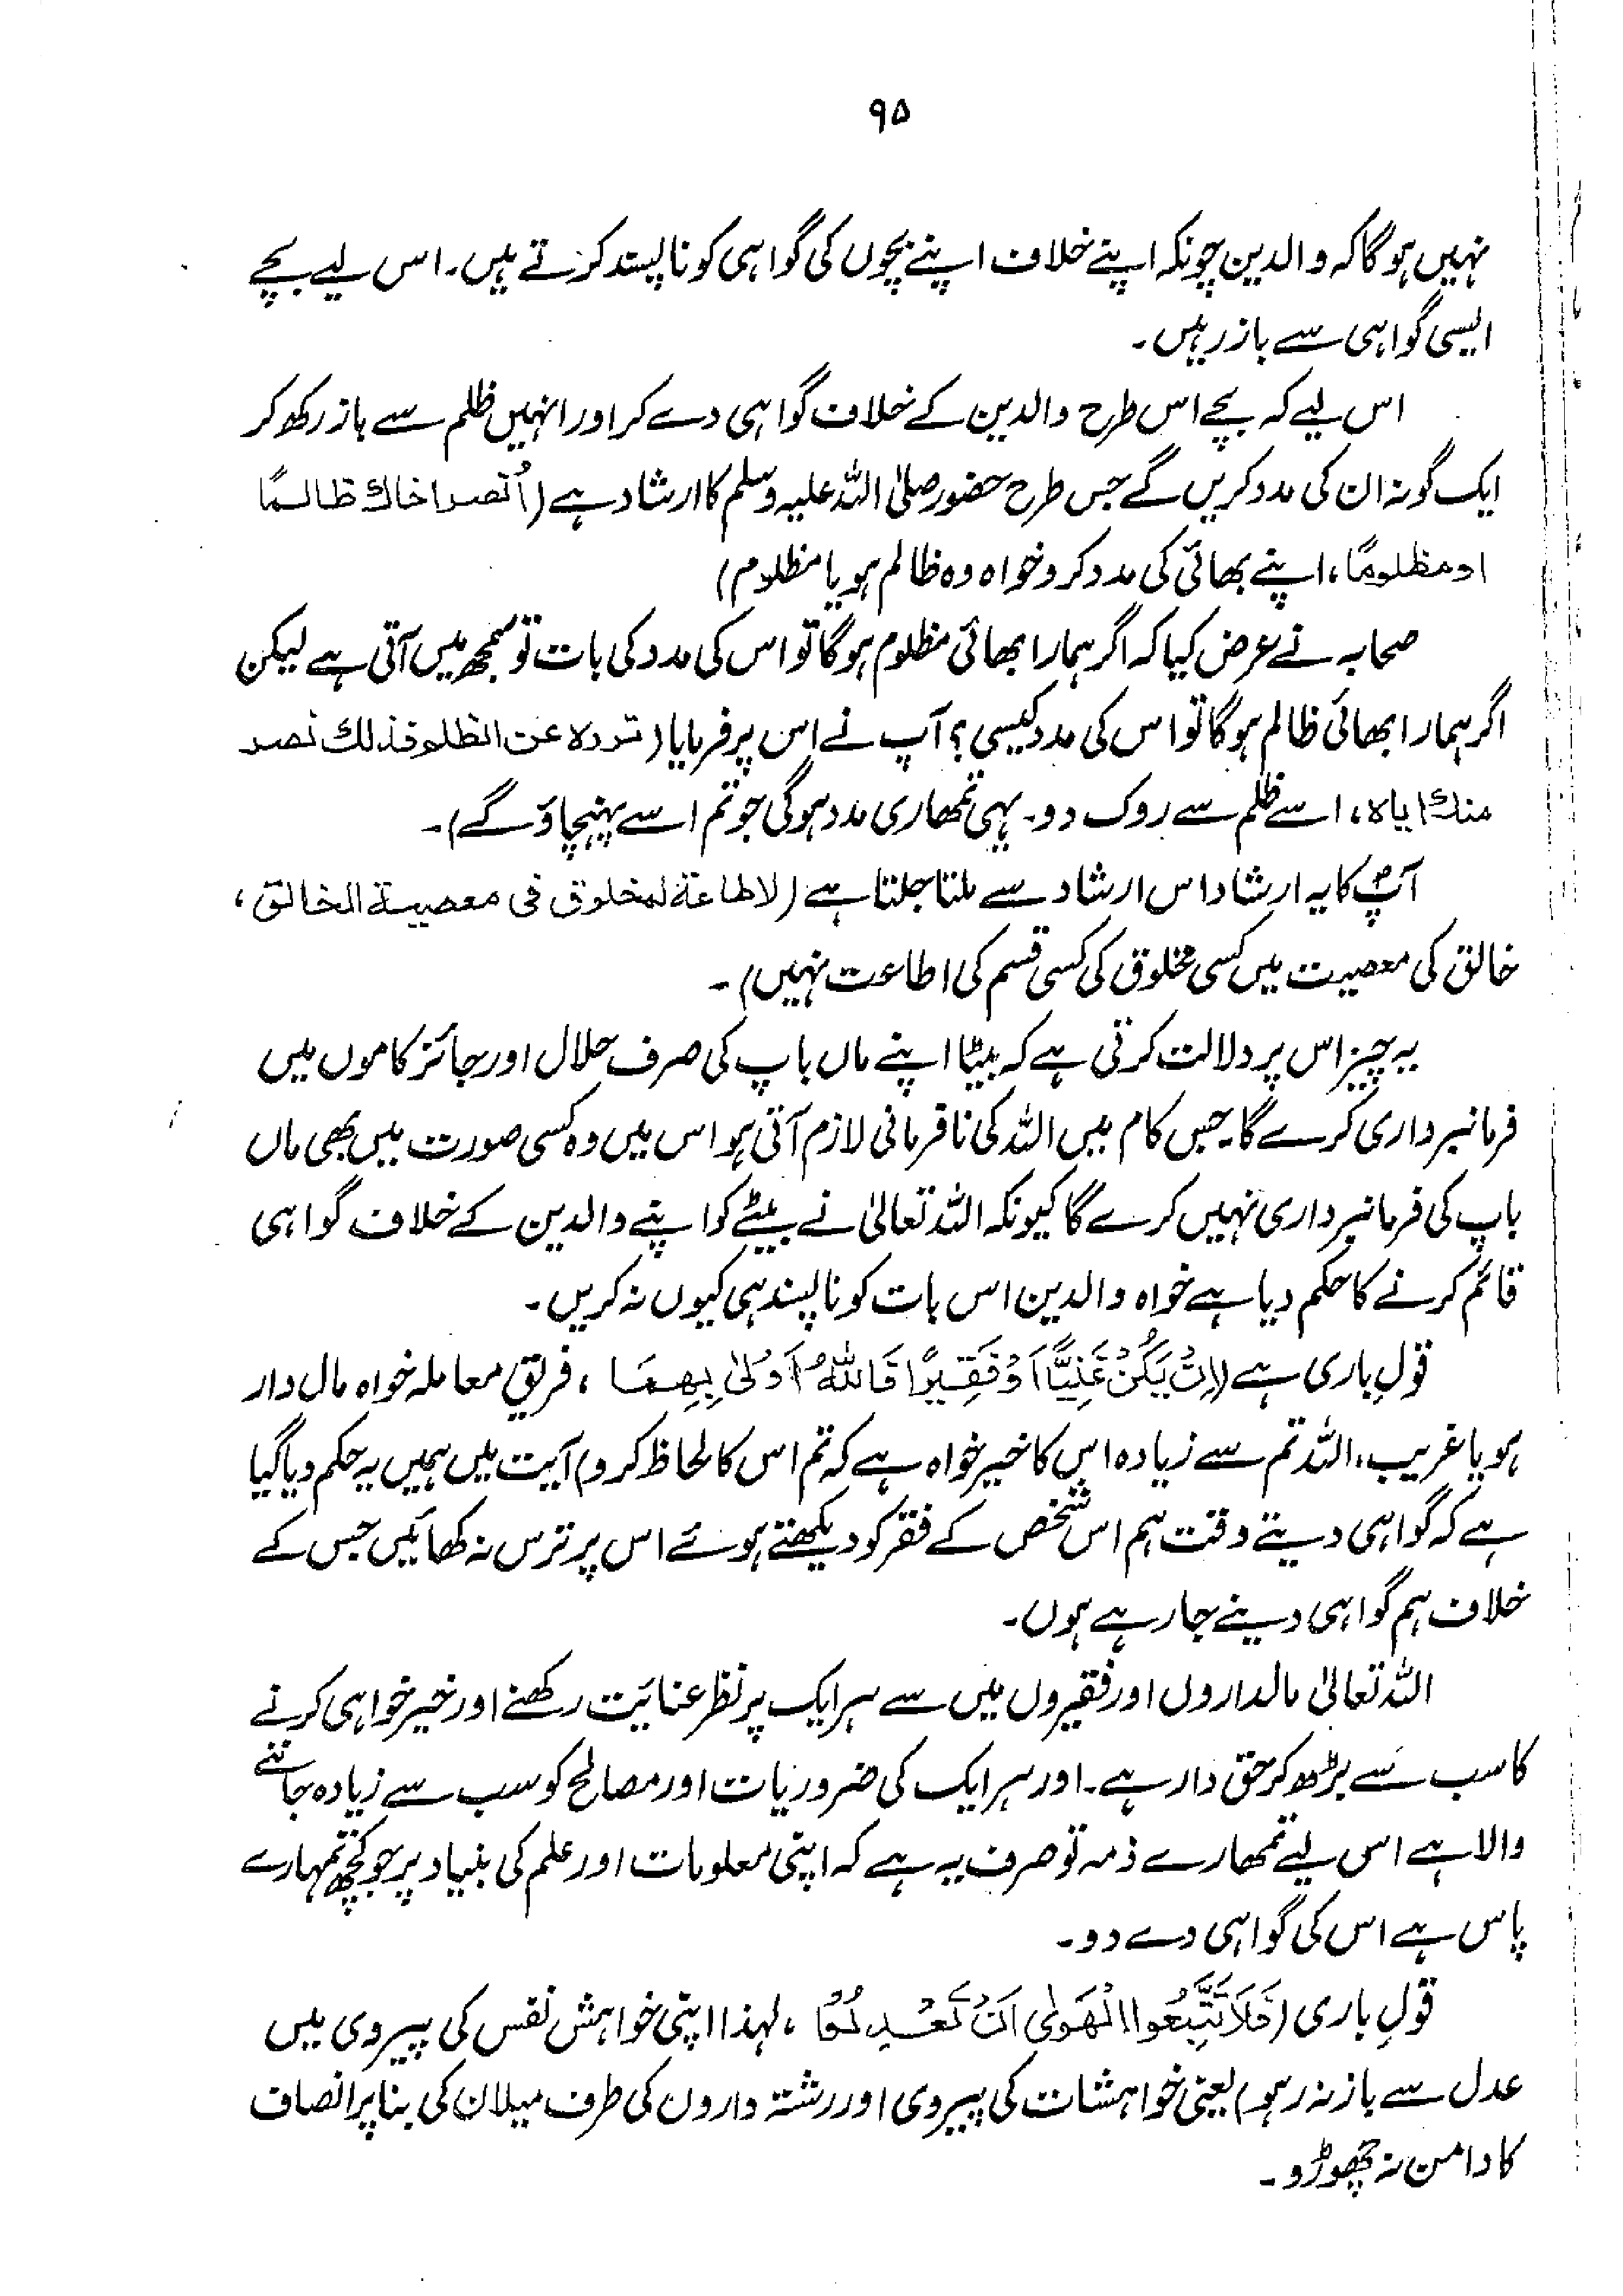 ۹۵
نہیں ہوگا کہ والدین چونکہ اپنے خلاف اپنے بچوں کی گواہی کو ناپسند کرتے ہیں۔ اس لیے بچے
ایسی گواہی سے باز رہیں۔
اس لیے کہ بچے اس طرح والدین کے خلاف گواہی دے کر اور انہیں ظلم سے باز رکھ کر
ایک گونہ ان کی مدد کریں گے جس طرح حضور صلی اللہ علیہ وسلم کا ارشاد ہے (اُنصر اخاك ظالمًا
او مظلومًا، اپنے بھائی کی مدد کرو خواہ وہ ظالم ہو یا مظلوم)
صحابہ نے عرض کیا کہ اگر ہمارا بھائی مظلوم ہوگا تو اس کی مدد کی بات تو سمجھ میں آتی ہے لیکن
اگر ہمارا بھائی ظالم ہوگا تو اس کی مدد کیسی؟ آپ نے اس پر فرمایا (تردہ عن الظلم فذلك نصر
منك ایاہ، اسے ظلم سے روک دو۔ یہی تمھاری مدد ہوگی جو تم اسے پہنچاؤ گے)۔
آپؐ کا یہ ارشاد اس ارشاد سے ملتا جلتا ہے (لاطاعة لمخلوق فی معصیة الخالق،
خالق کی معصیت میں کسی مخلوق کی کسی قسم کی اطاعت نہیں)۔
یہ چیز اس پر دلالت کرتی ہے کہ بیٹا اپنے ماں باپ کی صرف حلال اور جائز کاموں میں
فرمانبرداری کرے گا۔ جس کام میں اللہ کی نافرمانی لازم آتی ہو اس میں وہ کسی صورت میں بھی ماں
باپ کی فرمانبرداری نہیں کرے گا کیونکہ اللہ تعالیٰ نے بیٹے کو اپنے والدین کے خلاف گواہی
قائم کرنے کا حکم دیا ہے خواہ والدین اس بات کو ناپسند ہی کیوں نہ کریں۔
قولِ باری ہے (اِنْ يَكُنْ غَنِيًّا اَوْ فَقِيْرًا فَاللّٰهُ اَوْلٰى بِهِمَا، فریقِ معاملہ خواہ مال دار
ہو یا غریب، اللہ تم سے زیادہ اس کا خیر خواہ ہے کہ تم اس کا لحاظ کرو) آیت میں ہمیں یہ حکم دیا گیا
ہے کہ گواہی دیتے وقت ہم اس شخص کے فقر کو دیکھتے ہوئے اس پر ترس نہ کھائیں جس کے
خلاف ہم گواہی دینے جا رہے ہوں۔
اللہ تعالیٰ مالداروں اور فقیروں میں سے ہر ایک پر نظر عنایت رکھنے اور خیر خواہی کرنے
کا سب سے بڑھ کر حق دار ہے۔ اور ہر ایک کی ضروریات اور مصالح کو سب سے زیادہ جاننے
والا ہے اس لیے تمھارے ذمہ تو صرف یہ ہے کہ اپنی معلومات اور علم کی بنیاد پر جو کچھ تمہارے
پاس ہے اس کی گواہی دے دو۔
قولِ باری (فَلَا تَتَّبِعُوا الْهَوٰى اَنْ تَعْدِلُوْا، لہذا اپنی خواہش نفس کی پیروی میں
عدل سے باز نہ رہو) یعنی خواہشات کی پیروی اور رشتہ داروں کی طرف میلان کی بنا پر انصاف
کا دامن نہ چھوڑو۔